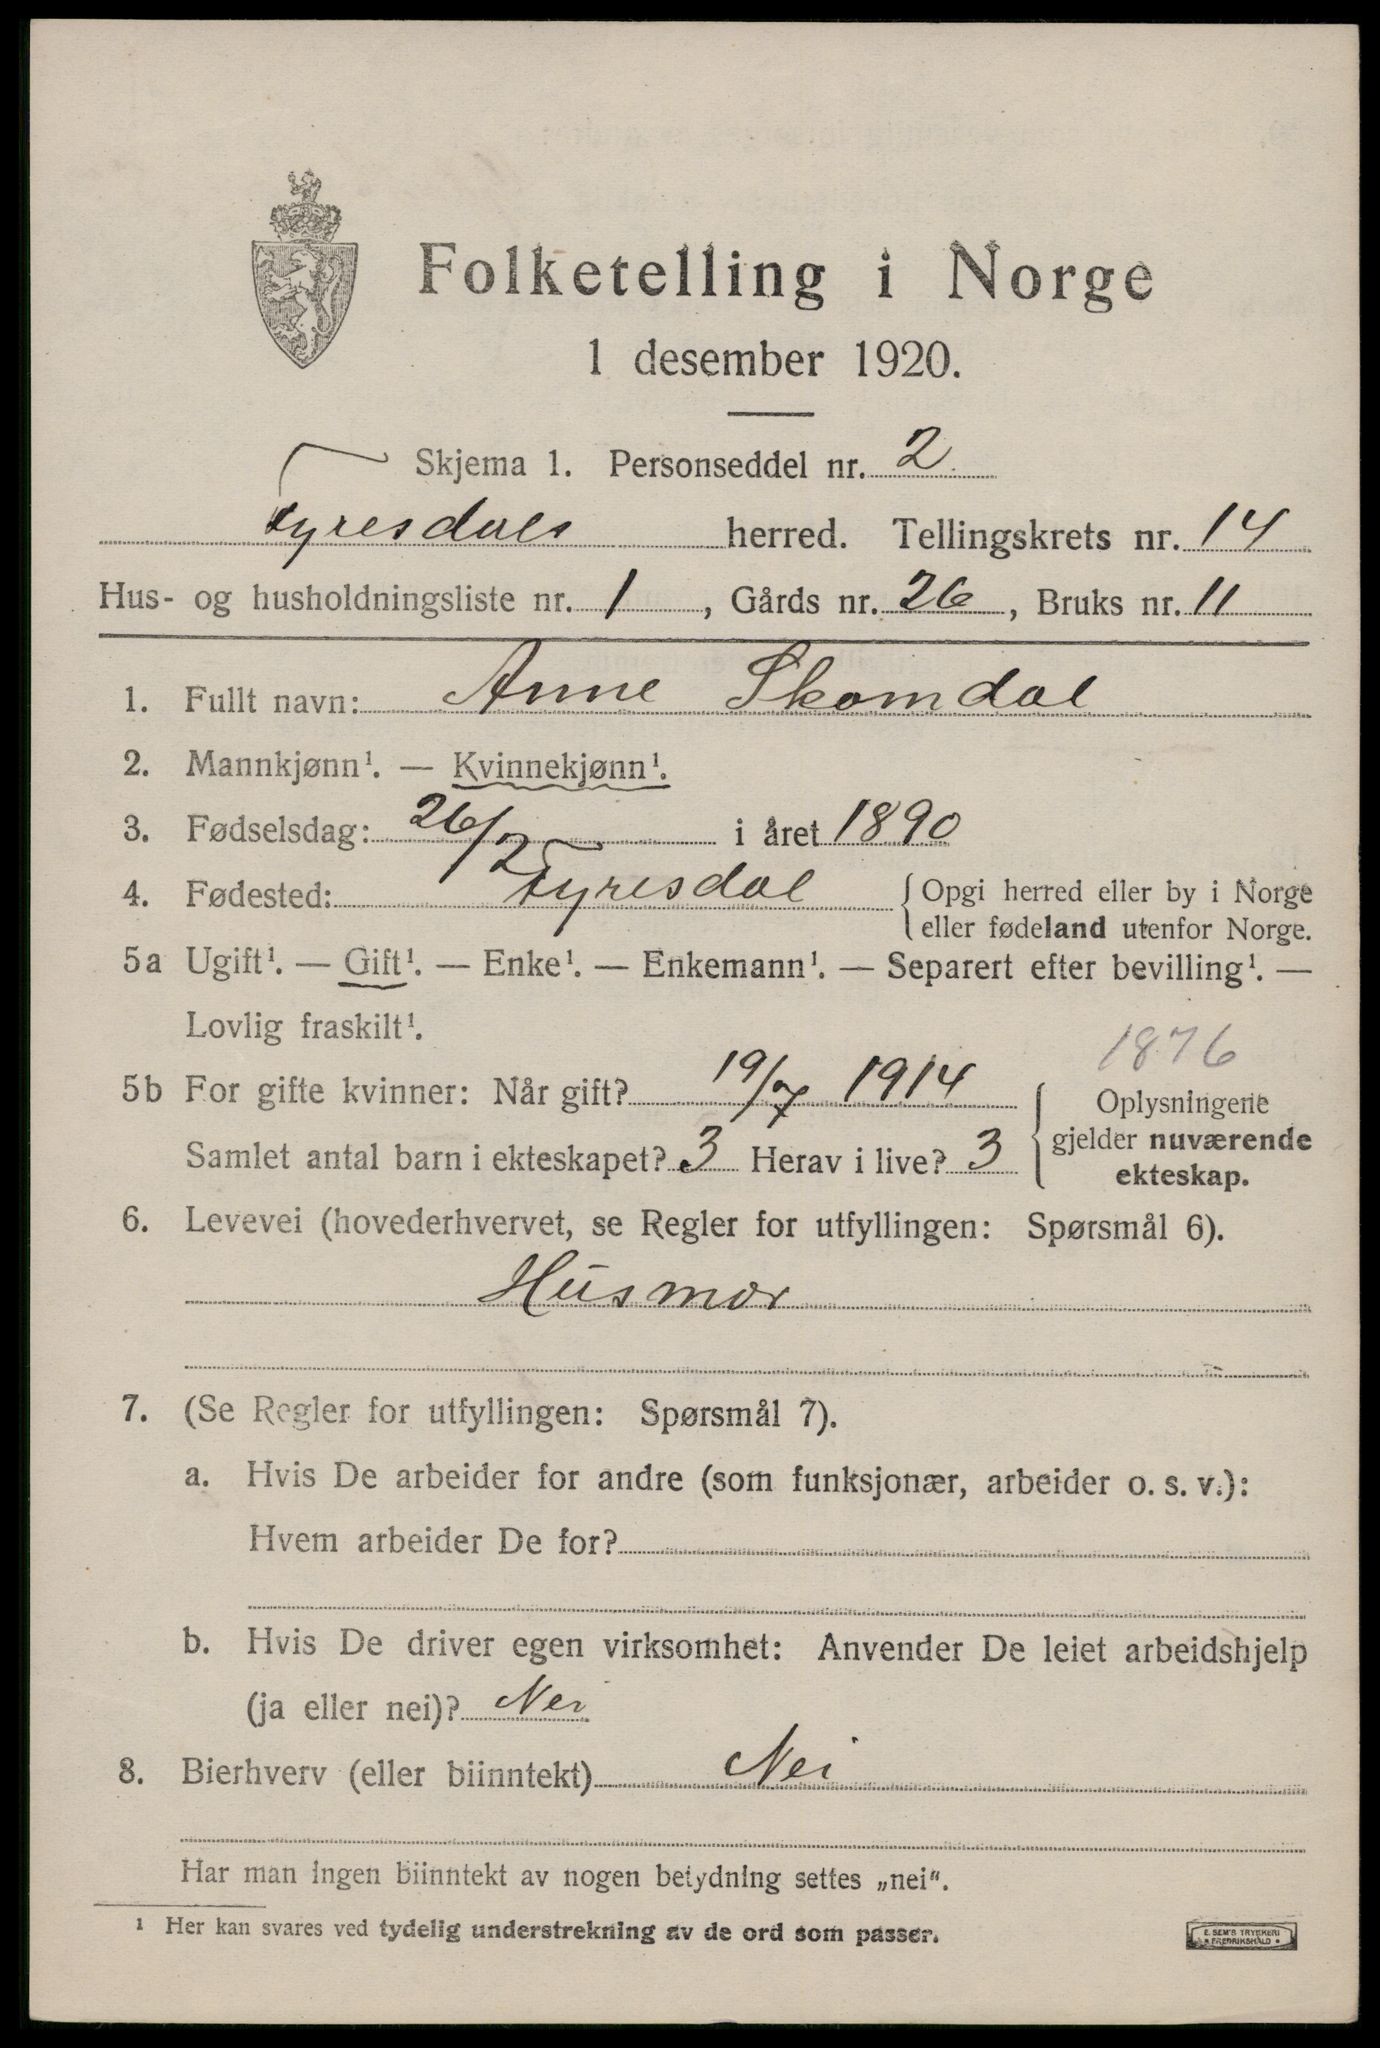 Folketelling i Norge
1 desember 1920.
Skjema 1. Personseddel nr. 2
Fyresdals herred. Tellingskrets nr. 14
Hus- og husholdningsliste nr. 1, Gårds nr. 26, Bruks nr. 11
1. Fullt navn: Anne Skomdal
2. Mannkjønn¹. — Kvinnekjønn¹.
3. Fødselsdag: 26/2 i året 1890
4. Fødested: Fyresdal { Opgi herred eller by i Norge
eller fødeland utenfor Norge.
5a Ugift¹. — Gift¹. — Enke¹. — Enkemann¹. — Separert efter bevilling¹. —
Lovlig fraskilt¹.
1876
5b For gifte kvinner: Når gift? 19/7 1914 { Oplysningene
gjelder nuværende
ekteskap.
Samlet antal barn i ekteskapet? 3 Herav i live? 3
6. Levevei (hovederhvervet, se Regler for utfyllingen: Spørsmål 6).
Husmor
7. (Se Regler for utfyllingen: Spørsmål 7).
a. Hvis De arbeider for andre (som funksjonær, arbeider o. s. v.):
Hvem arbeider De for?
b. Hvis De driver egen virksomhet: Anvender De leiet arbeidshjelp
(ja eller nei)? Nei
8. Bierhverv (eller biinntekt) Nei
Har man ingen biinntekt av nogen betydning settes „nei“.
¹ Her kan svares ved tydelig understrekning av de ord som passer.
E. SEM'S TRYKKERI
FREDRIKSHALD